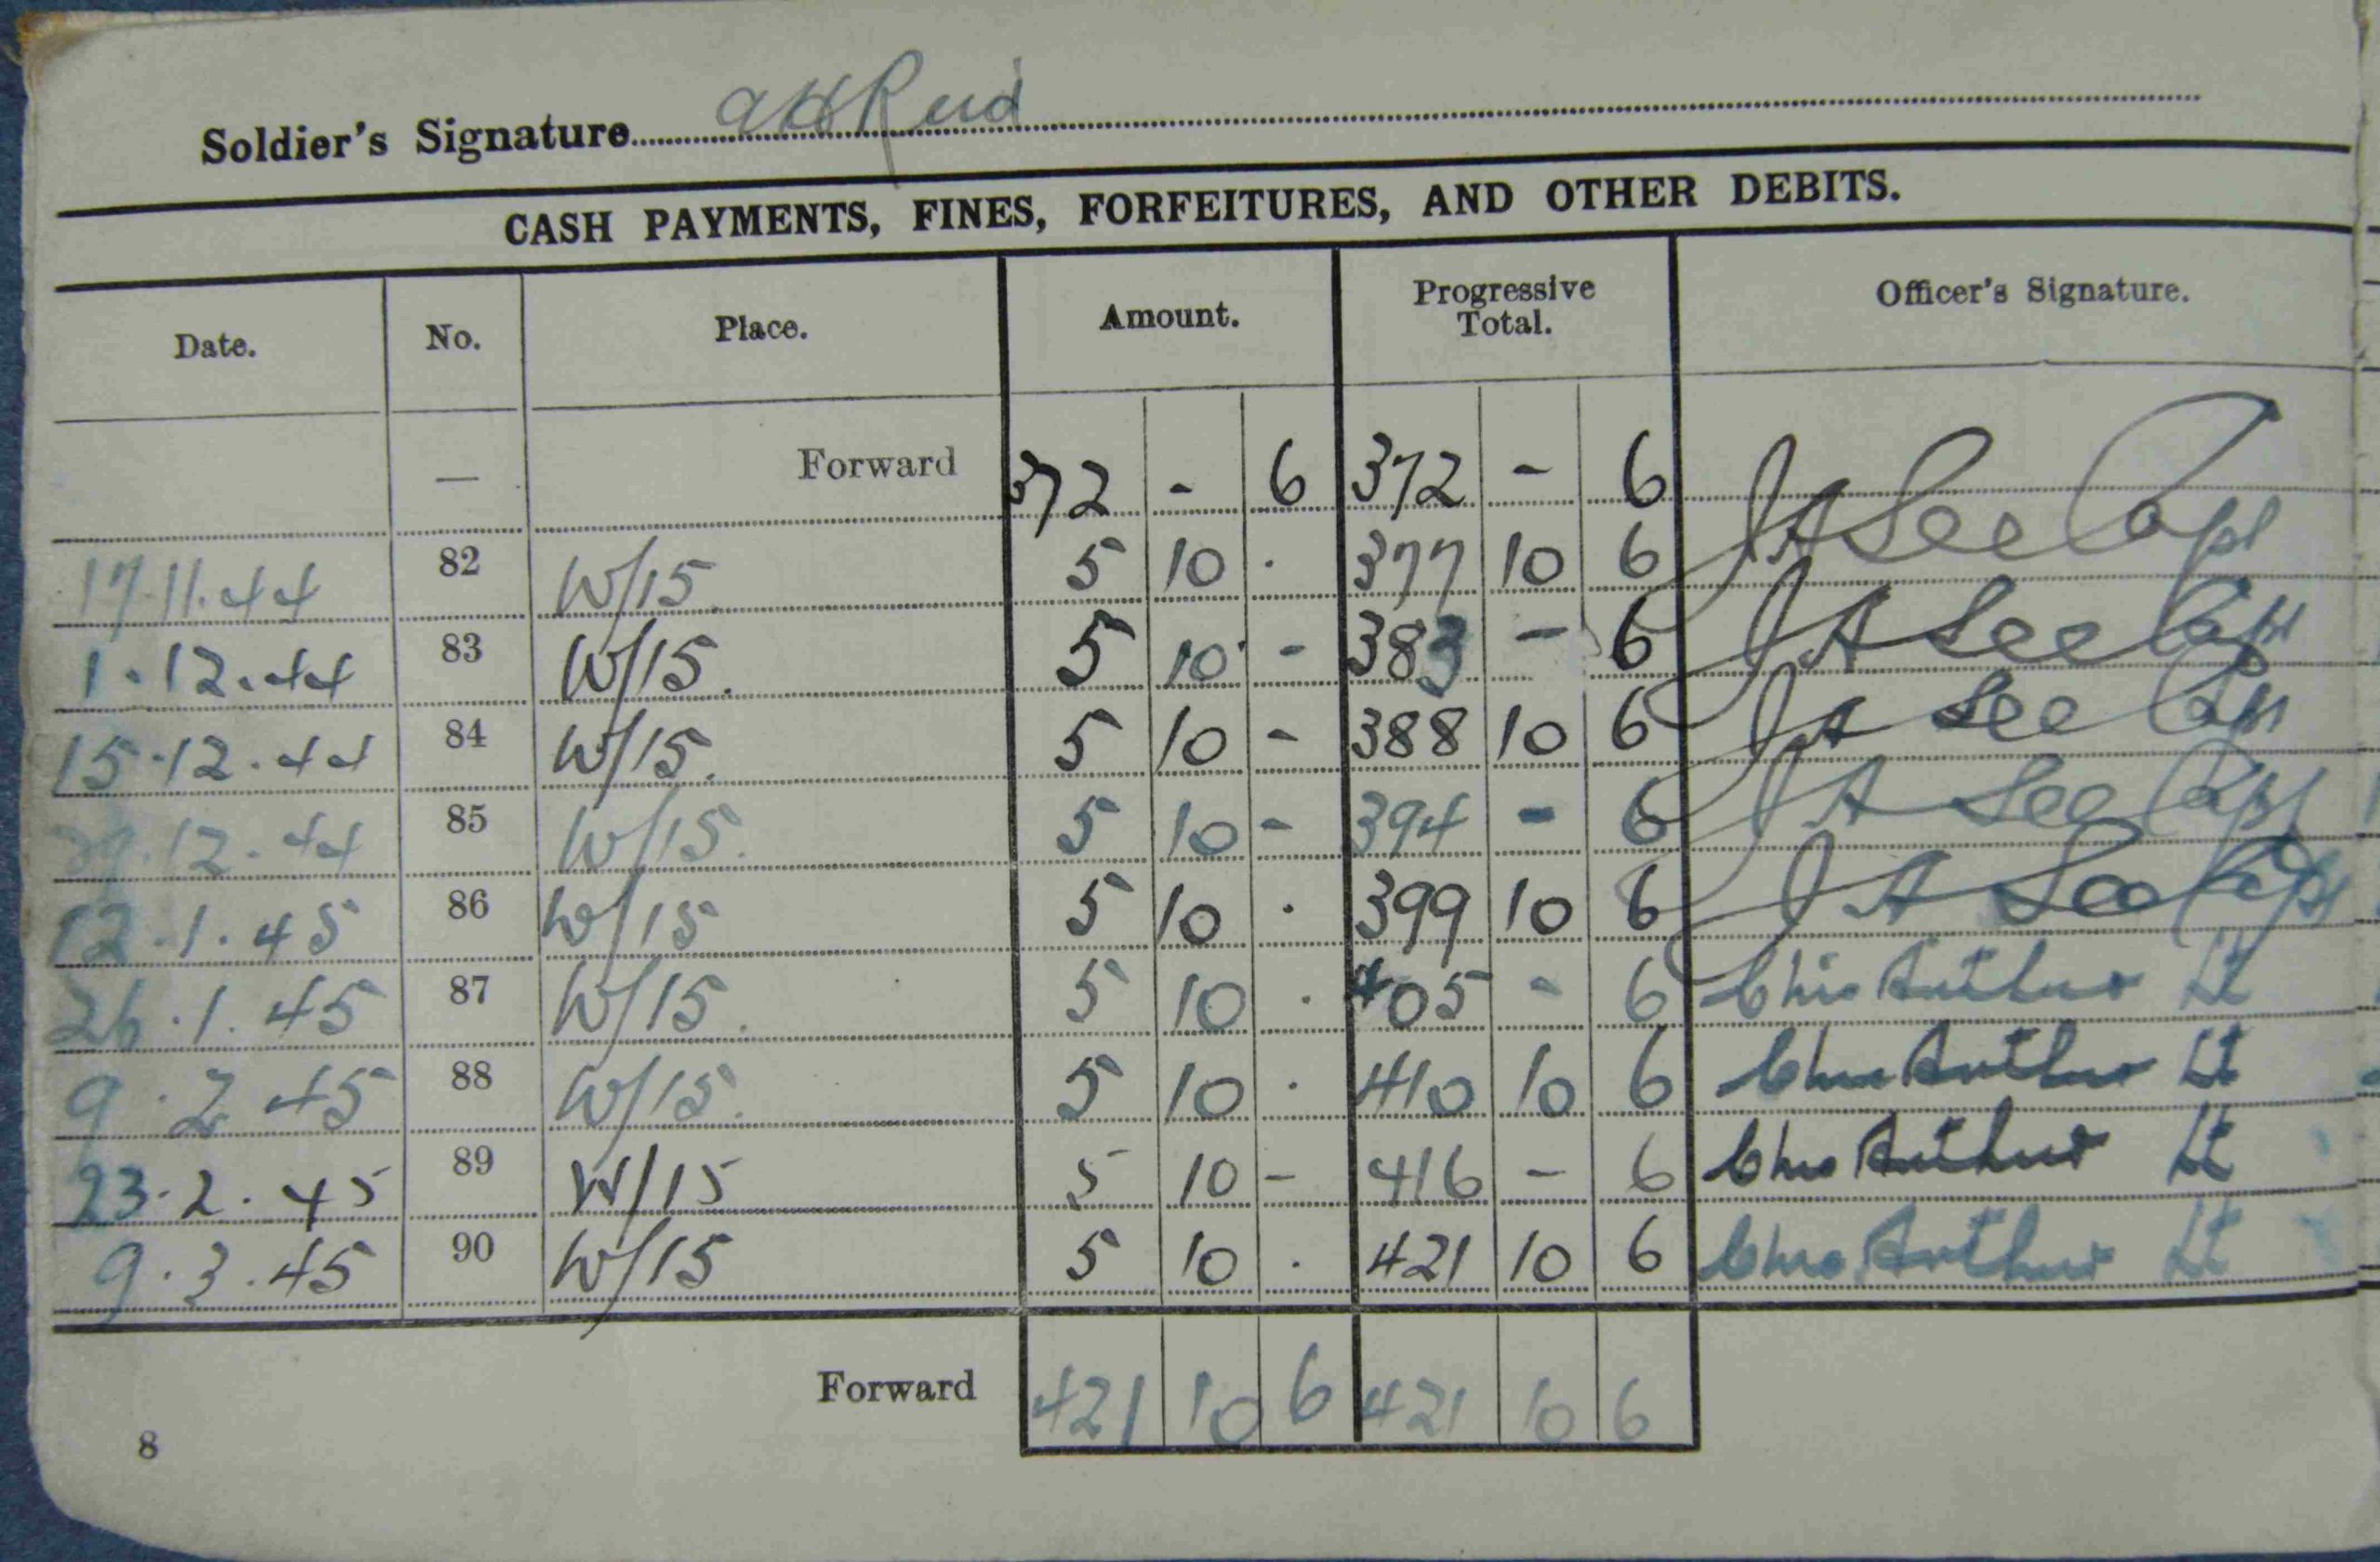 Soldier's Signature AH Reid
CASH PAYMENTS, FINES, FORFEITURES, AND OTHER DEBITS.
Date. No. Place. Amount. Progressive Total. Officer's Signature.
— Forward 372 - 6 372 - 6
17.11.44 82 W/15. 5 10 . 377 10 6 JA Lee Capt
1.12.44 83 W/15. 5 10 - 383 - 6 JA Lee Capt
15.12.44 84 W/15. 5 10 - 388 10 6 JA Lee Capt
29.12.44 85 W/15. 5 10 - 394 - 6 JA Lee Capt
12.1.45 86 W/15 5 10 . 399 10 6 JA Lee Capt
26.1.45 87 W/15. 5 10 . 405 - 6 Chas Arthur Lt
9.2.45 88 W/15. 5 10 . 410 10 6 Chas Arthur Lt
23.2.45 89 W/15 5 10 - 416 - 6 Chas Arthur Lt
9.3.45 90 W/15 5 10 . 421 10 6 Chas Arthur Lt
Forward 421 10 6 421 10 6
8